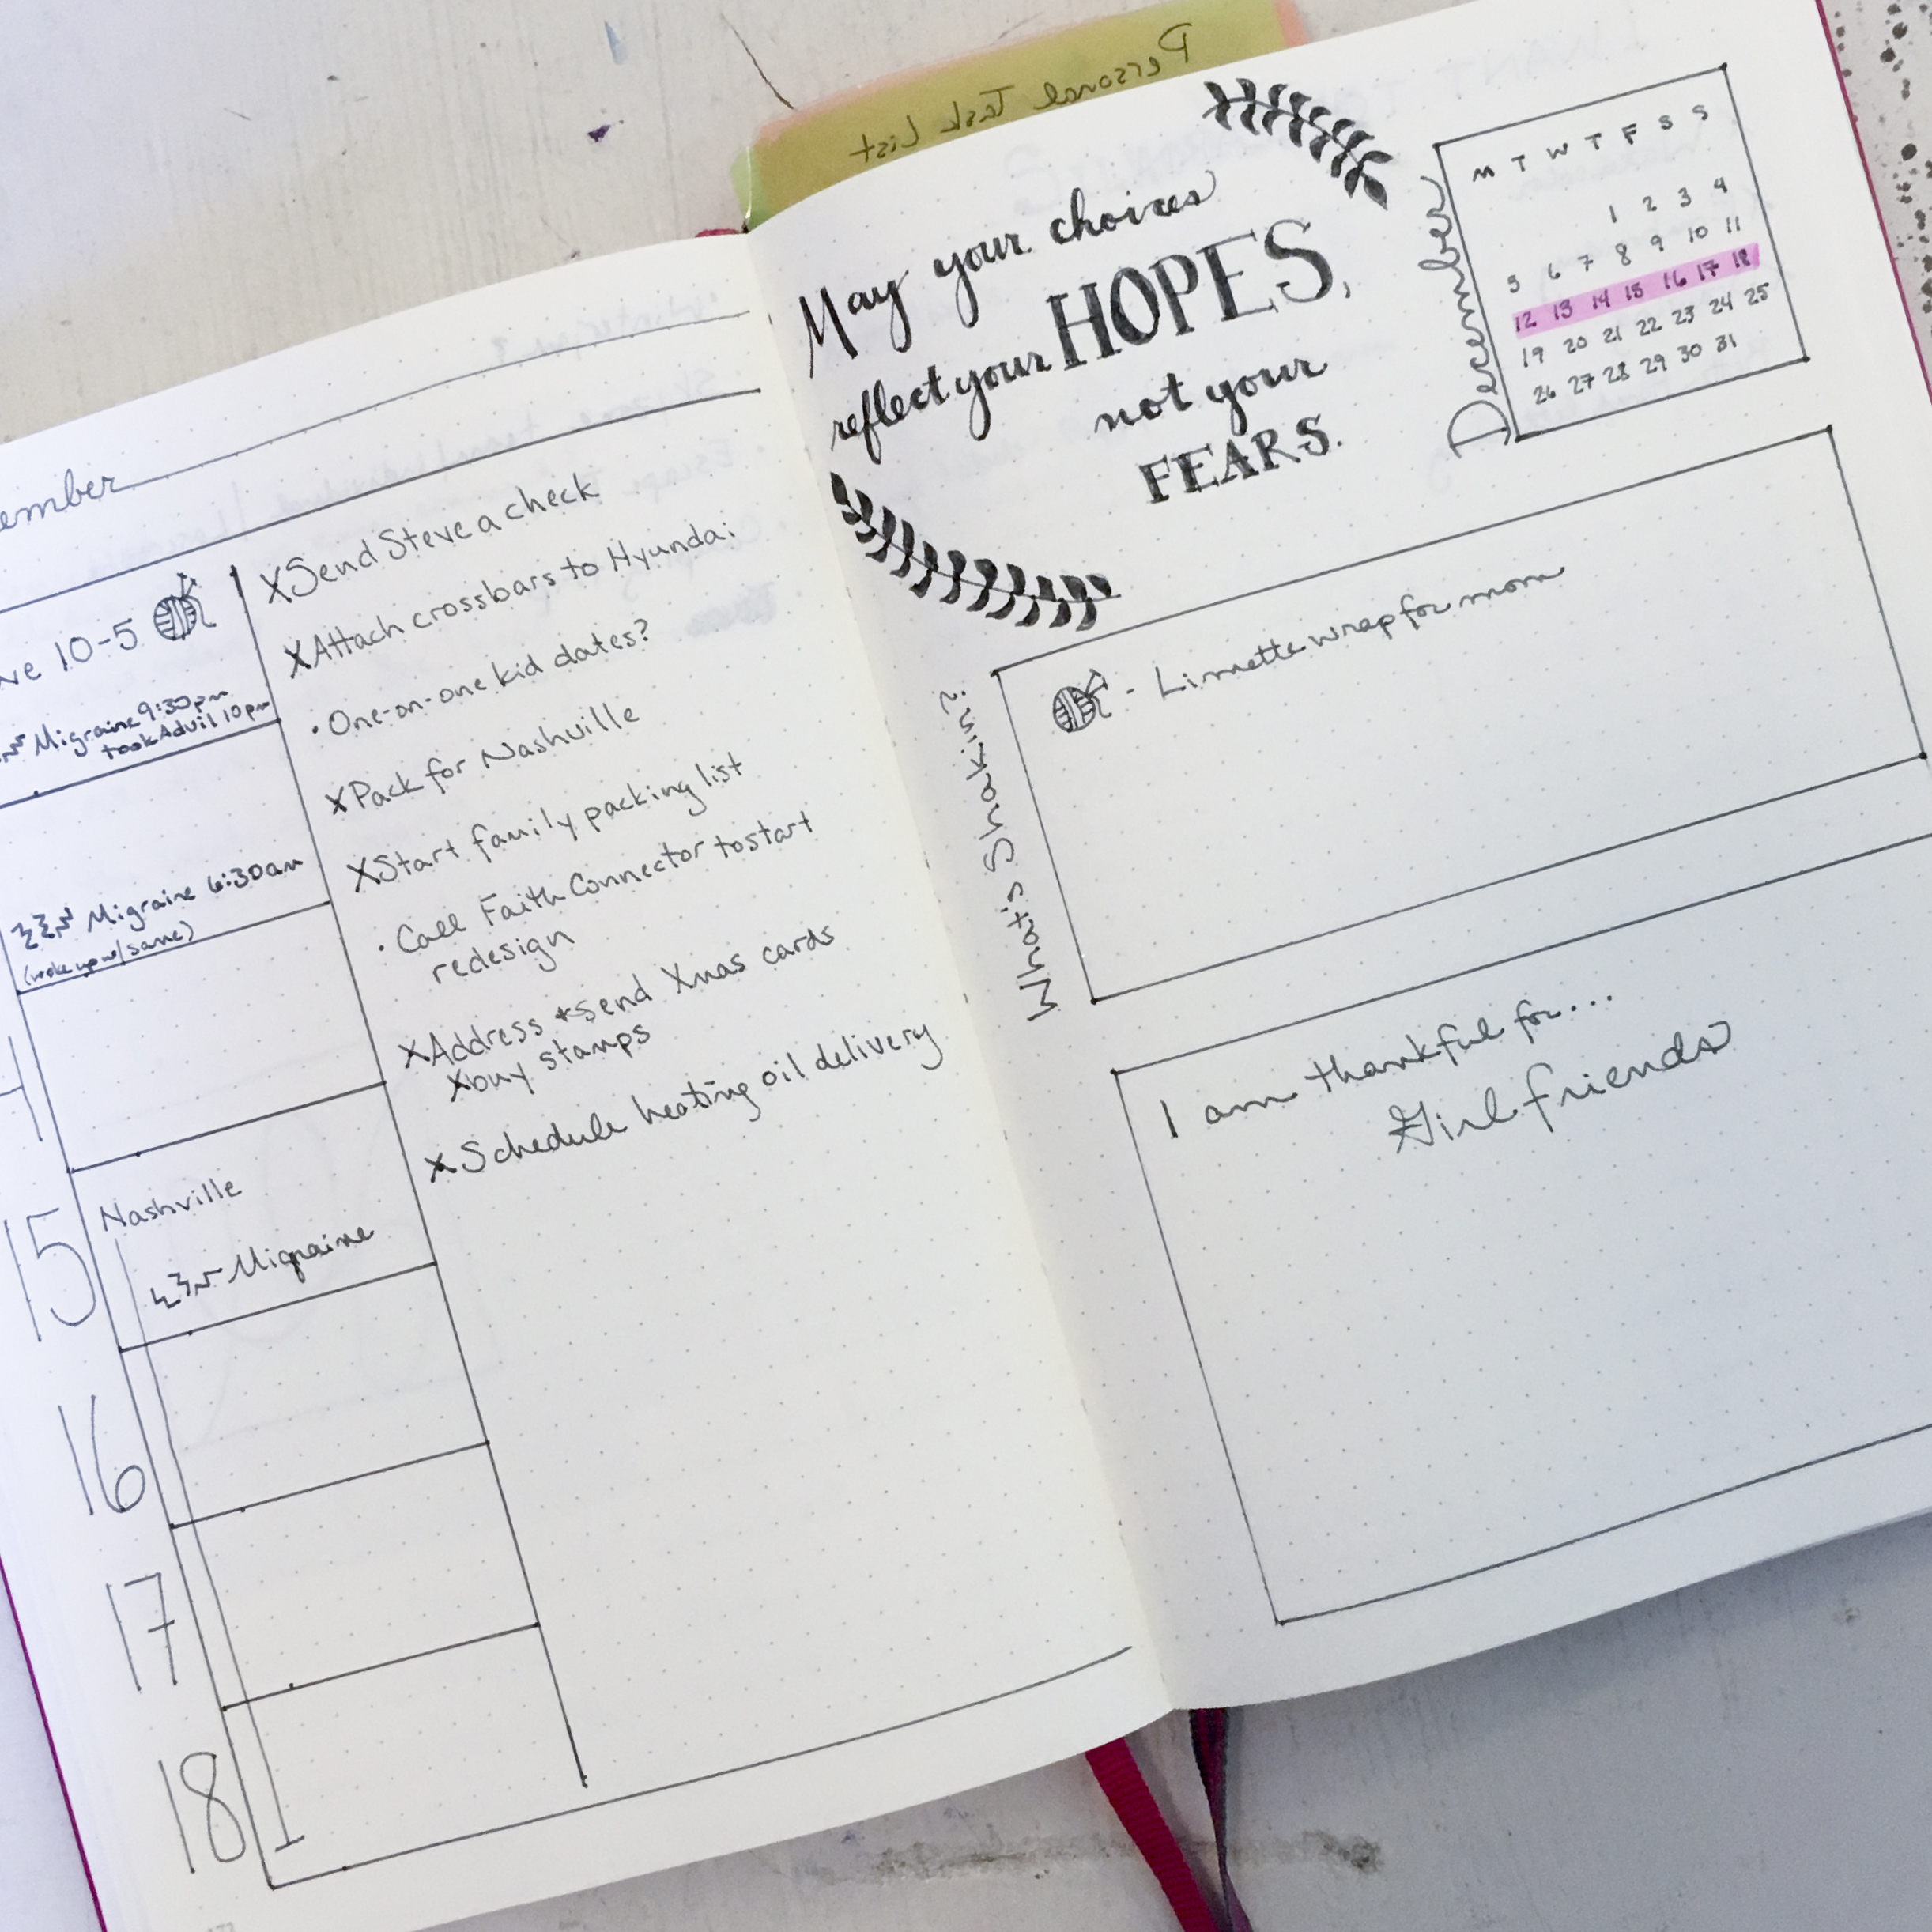 ember
10-5
Migraine 9:30pm
took Advil 10pm
Migraine 6:30am
(woke up w/same)
15
Nashville
Migraine
16
17
18
X Send Steve a check
X Attach crossbars to Hyundai
· One-on-one kid dates?
X Pack for Nashville
X Start family packing list
· Call Faith Connector to start
redesign
X Address + send Xmas cards
X buy stamps
X Schedule heating oil delivery
Personal Task List
May your choices
reflect your HOPES,
not your
FEARS.
December
M T W T F S S
1 2 3 4
5 6 7 8 9 10 11
12 13 14 15 16 17 18
19 20 21 22 23 24 25
26 27 28 29 30 31
What's Shakin?
- Limette wrap for mom
I am thankful for...
Girlfriends